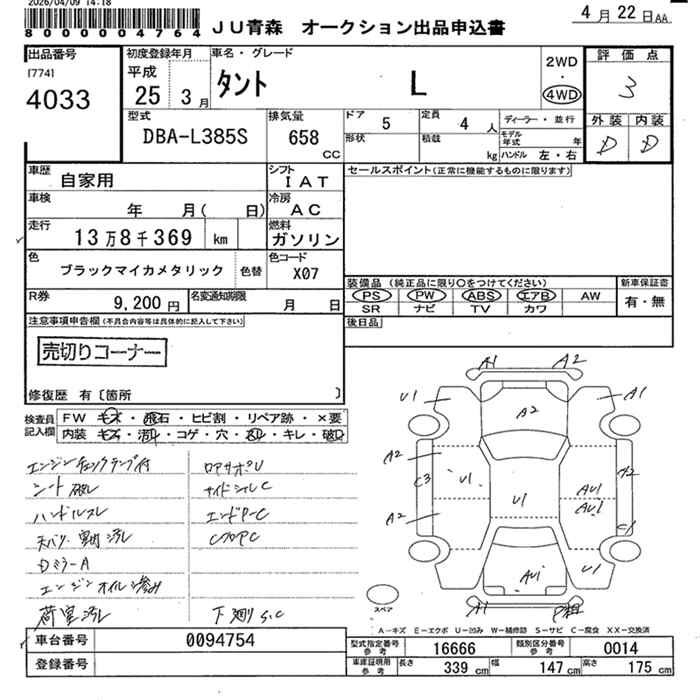 2026/04/09 14:18
8000004764
JU青森 オークション出品申込書
4月22日AA
出品番号
[774]
4033
初度登録年月
平成
25 3月
車名・グレード
タント L
2WD
・
4WD
評価点
3
外装 内装
D D
型式
DBA-L385S
排気量
658
CC
ドア 5
形状
定員 4 人
積載 kg
ディーラー・並行
モデル年式 年
ハンドル 左・右
車歴
自家用
シフト
IAT
セールスポイント(正常に機能するものに限ります)
車検
年 月( 日)
冷房
AC
走行
13万8千369 km
燃料
ガソリン
色
ブラックマイカメタリック
色替
色コード
X07
装備品(純正品に限り〇をつけてください)
PS PW ABS エアB AW
SR ナビ TV カワ
新車保証書
有・無
R券
9,200円
名変通知期限
月 日
後日品
注意事項申告欄(不具合内容等は具体的に記入して下さい)
売切りコーナー
修復歴 有〔箇所 〕
検査員記入欄
FW キズ・飛石・ヒビ割・リペア跡・×要
内装 キズ・汚れ・コゲ・穴・凹・キレ・破れ
エンジンチェックランプ付
シート破れ
ハンドルスレ
天バリ・室内汚レ
DミラーA
エンジンオイル滲み
荷室汚レ
ロアサポU
サイドシルC
エンドPC
CフロアC
下廻りS.C
A1 A2
U1 A1
A2
A2 C3 U1 U1 AU1 A2
AU1
A2 C1
AU1 U1
A1
スペア
A-キズ E-エクボ U-凹み W-補修跡 S-サビ C-腐食 XX-交換済
車台番号 0094754
登録番号
型式指定番号参考 16666
類別区分番号参考 0014
車庫証明用参考 長さ 339cm 幅 147cm 高さ 175cm